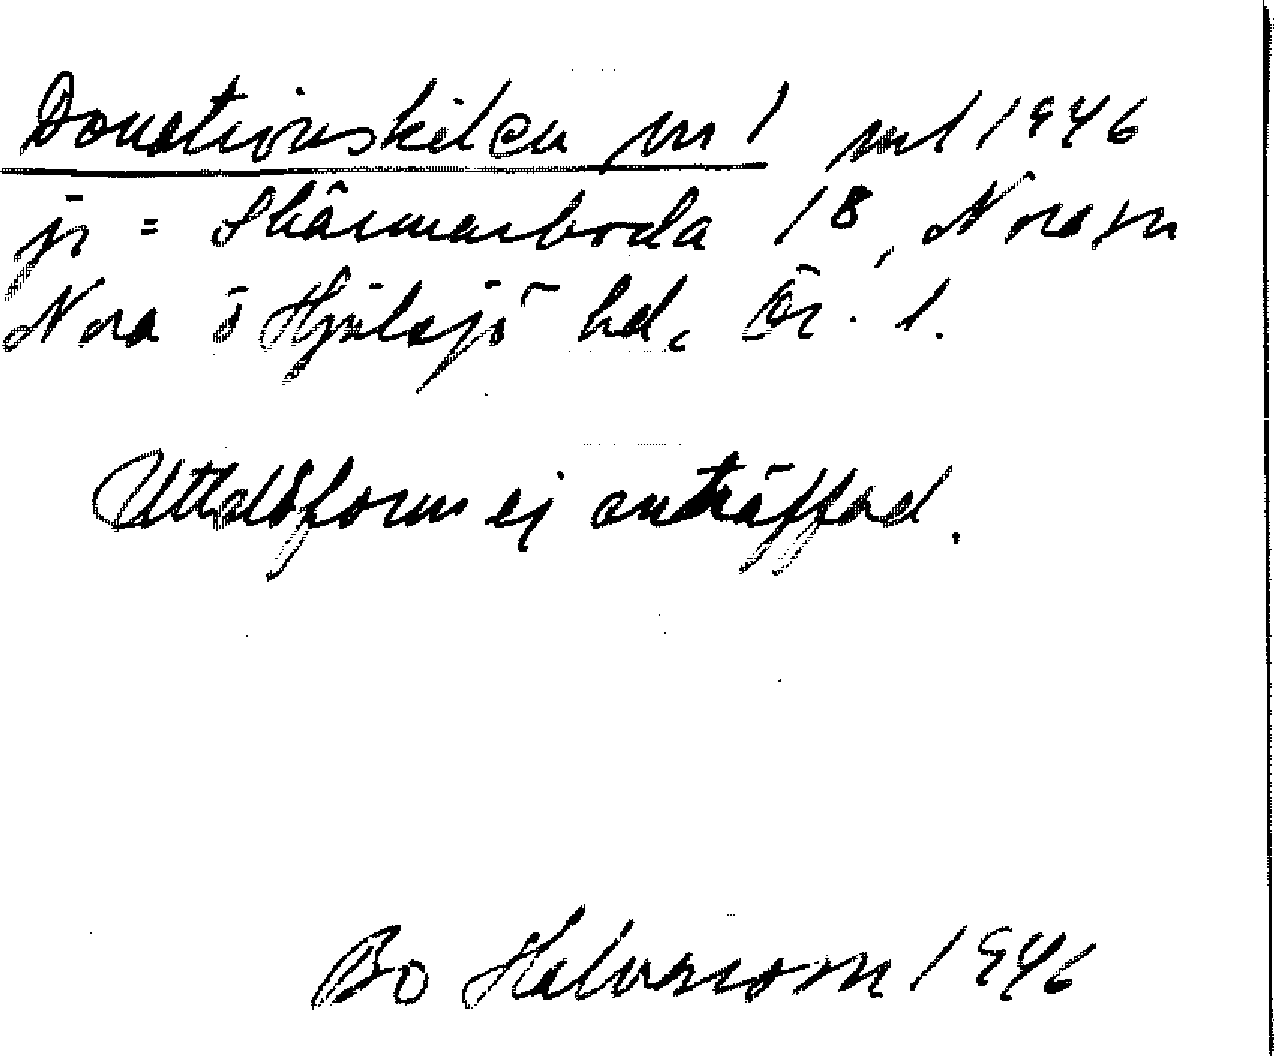 Donationskilen nr 1 ml 1946
jr = Skärmarboda 18, Nora sn
Nora o Hjulsjö hd, Ör. l.
Uttalsform ej anträffad.
Bo Halvarson 1946